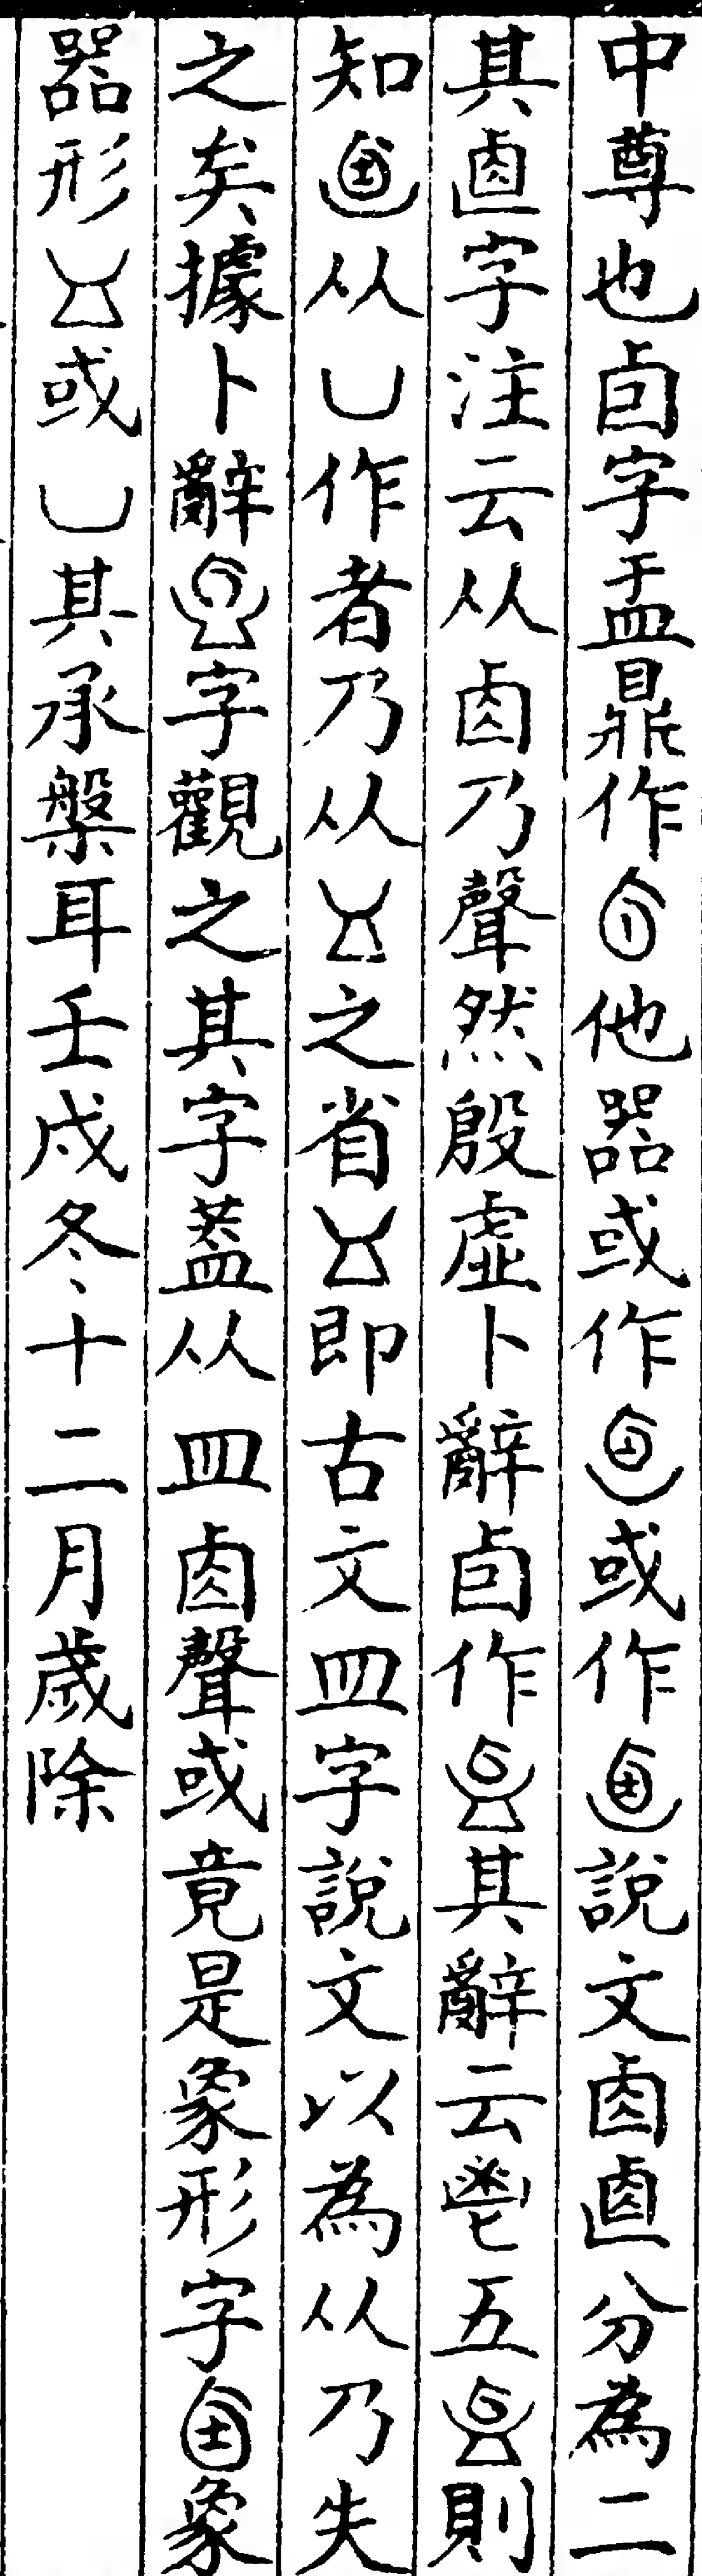 中尊也卣字盂鼎作他器或作或作說文卤𠧴分為二
其𠧴字注云从卤乃聲然殷虛卜辭卣作其辭云鬯五則
知从凵作者乃从之省即古文皿字說文以為从乃失
之矣據卜辭字觀之其字葢从皿卤聲或竟是象形字象
器形或凵其承槃耳壬戌冬十二月歲除